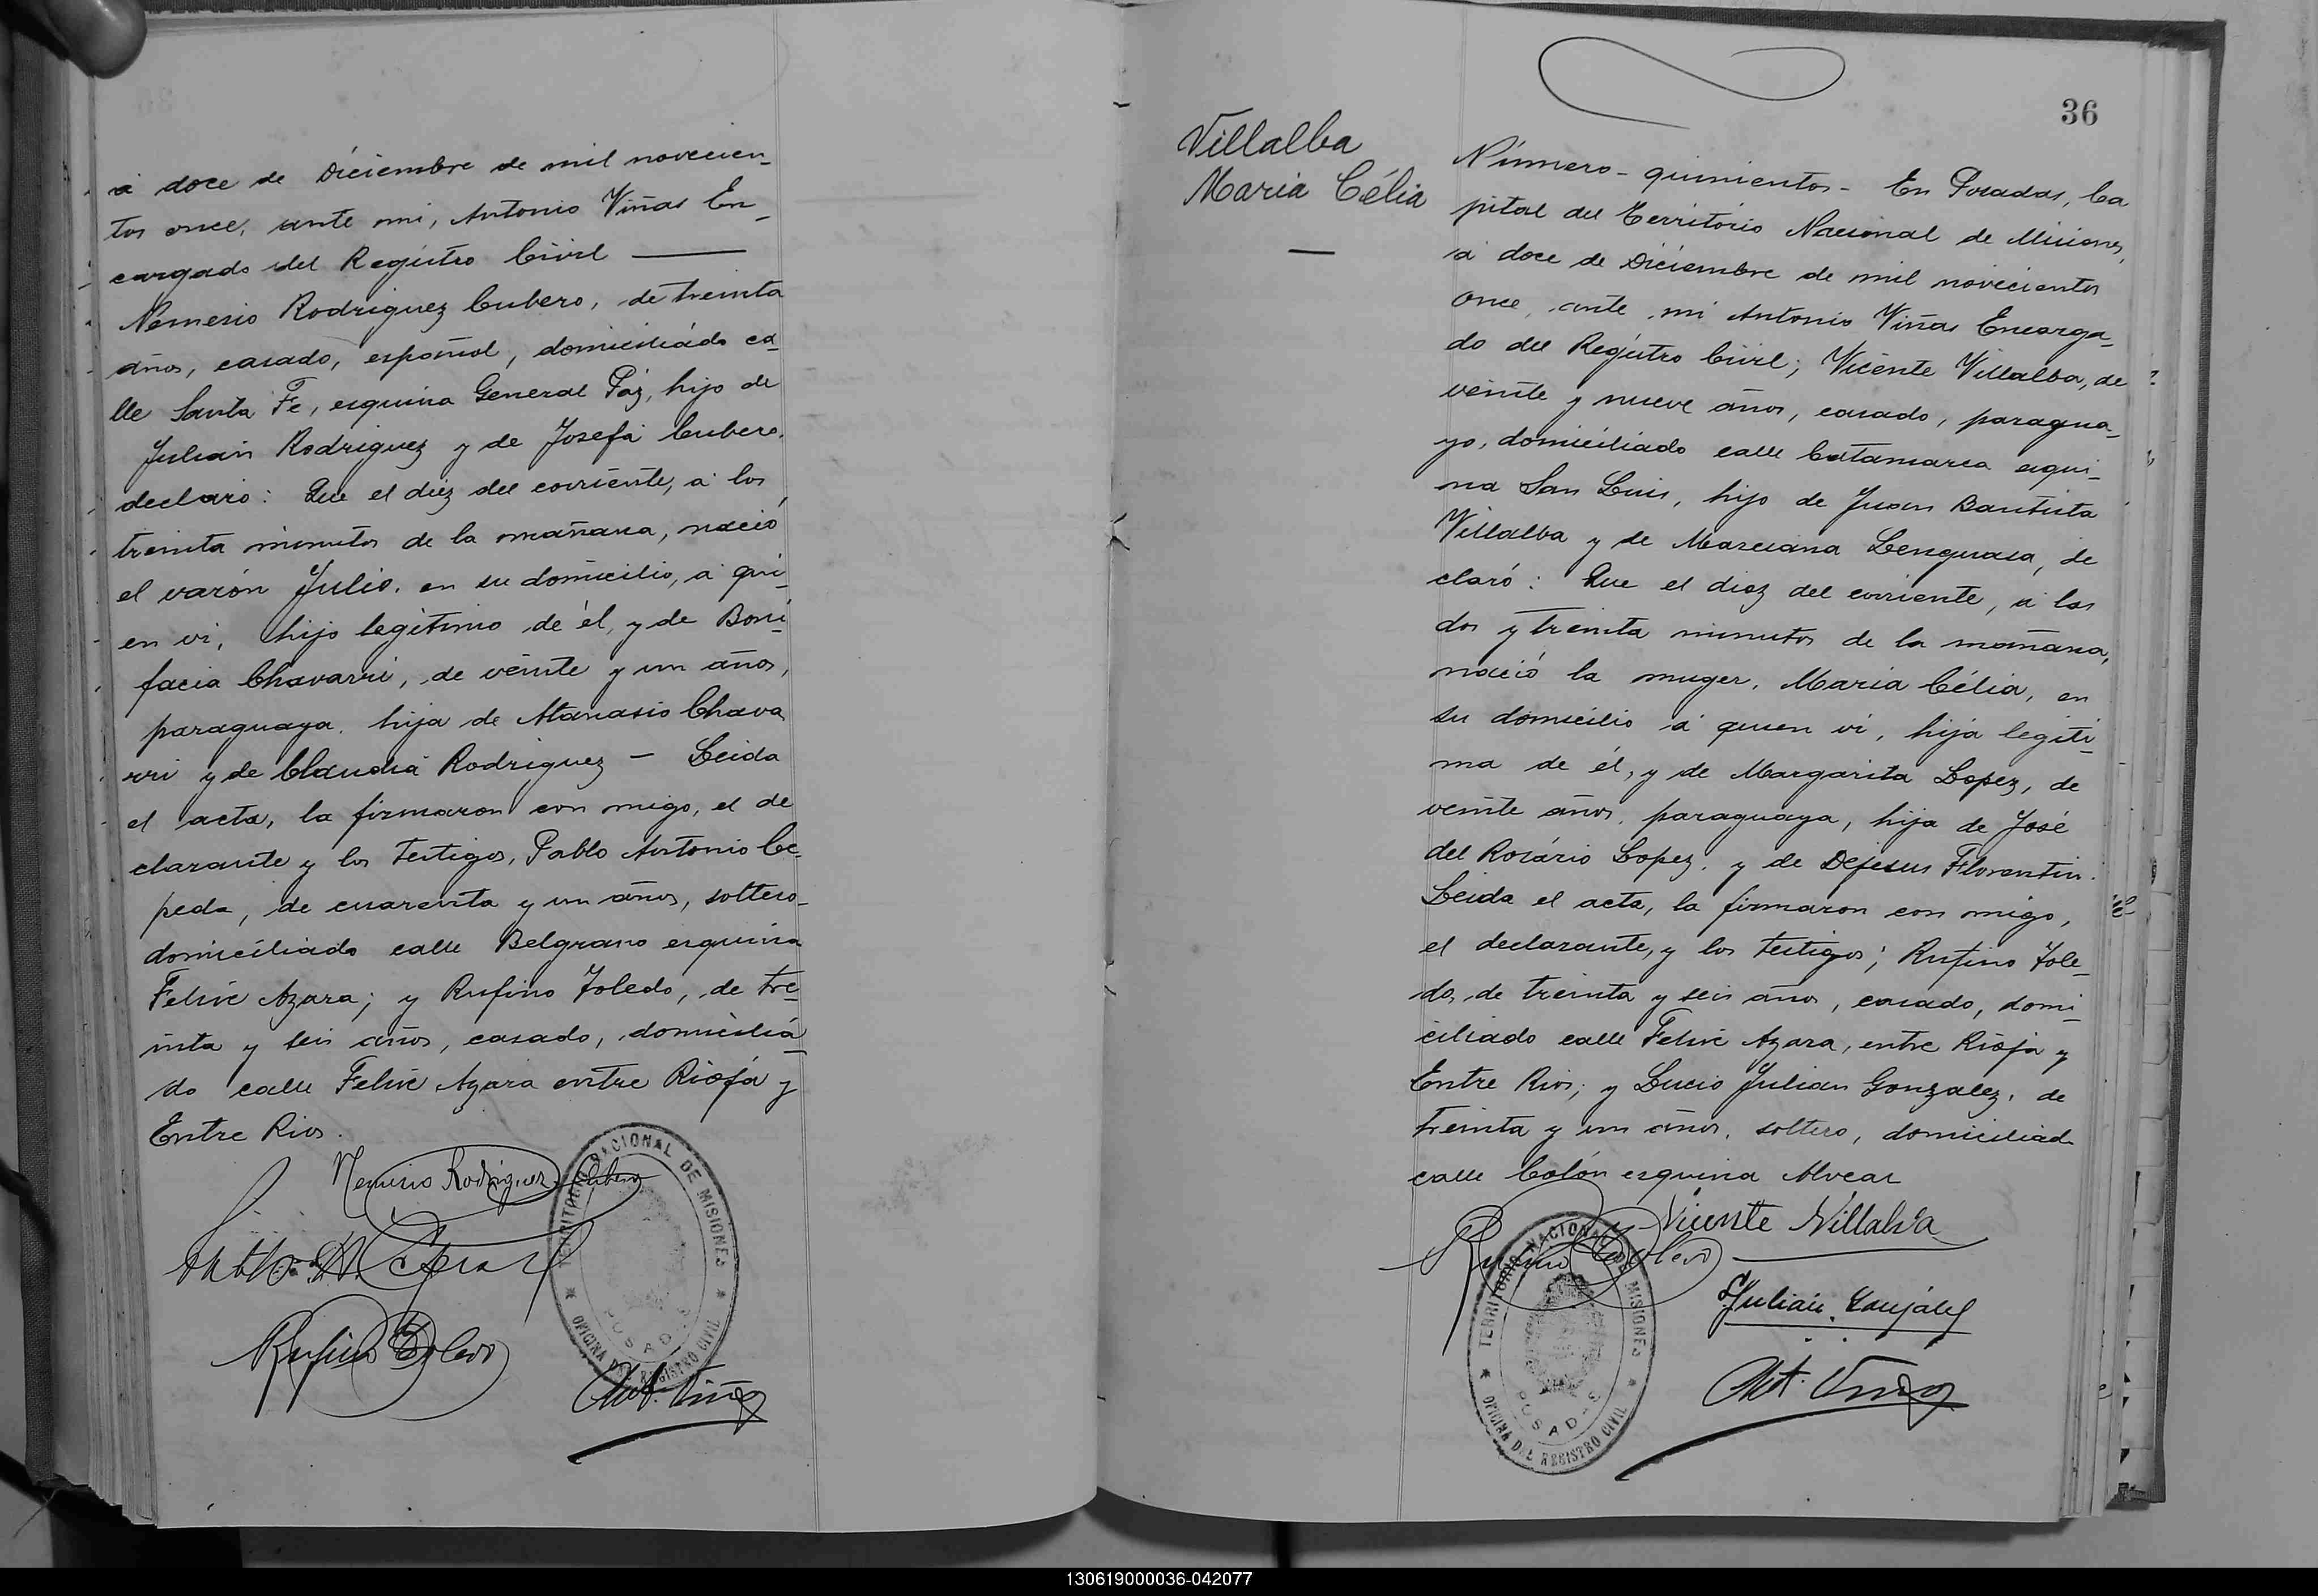 á doce de Diciembre de mil novecien-
tos once, ante mi, Antonio Viñas En-
cargado del Registro Civil ———
Nemesio Rodriguez Cubero, de treinta
años, casado, español, domiciliado ca-
lle Santa Fe, esquina General Páz, hijo de
Julian Rodriguez y de Josefa Cubero.
declaró: Que el diez del corriente, á los
treinta minutos de la mañana, nació
el varón Julio, en su domicilio, á qui-
en vi, hijo legítimo de él, y de Boni-
facia Chavarri, de veinte y un años,
paraguaya, hija de Atanasio Chava
rri y de Claudia Rodriguez — Leida
el acta, la firmaron con migo, el de
clarante y los testigos, Pablo Antonio Ce-
peda, de cuarenta y un años, soltero-
domiciliado calle Belgrano esquina
Felix Azara; y Rufino Toledo, de tre-
inta y seis años, casado, domicilia-
do calle Felix Azara entre Rioja y
Entre Rios.
Nemesio Rodriguez Cubero
Pablo A. Cepeda
Rufino Toledo
Ant. Viñas
TERRITORIO NACIONAL DE MISIONES
POSADAS
OFICINA DEL REGISTRO CIVIL
36
Villalba
Maria Célia
—
Número - quinientos - En Posadas, Ca
pital del Territorio Nacional de Misiones,
á doce de Diciembre de mil novecientos
once, ante mi Antonio Viñas Encarga-
do del Registro Civil; Vicente Villalba, de
veinte y nueve años, casado, paragua-
yo, domiciliado calle Catamarca esqui-
na San Luis, hijo de Juan Bautista
Villalba y de Marciana Lenguasa, de
claró: Que el diez del corriente, á las
dos y treinta minutos de la mañana,
nació la muger, Maria Célia, en
su domicilio á quien vi, hija legiti-
ma de él, y de Margarita Lopez, de
veinte años, paraguaya, hija de José
del Rosário Lopez, y de Dejesus Florentin.
Leida el acta, la firmaron con migo,
el declarante, y los testigos; Rufino Tole-
do, de treinta y seis años, casado, domi-
ciliado calle Felix Azara, entre Rioja y
Entre Rios; y Lucio Julian Gonzalez, de
treinta y un años, soltero, domiciliado
calle Colón esquina Alvear
Vicente Villalva
Rufino Toledo
Julian Gonzalez
Ant. Viñas
TERRITORIO NACIONAL DE MISIONES
POSADAS
OFICINA DEL REGISTRO CIVIL
130619000036-042077